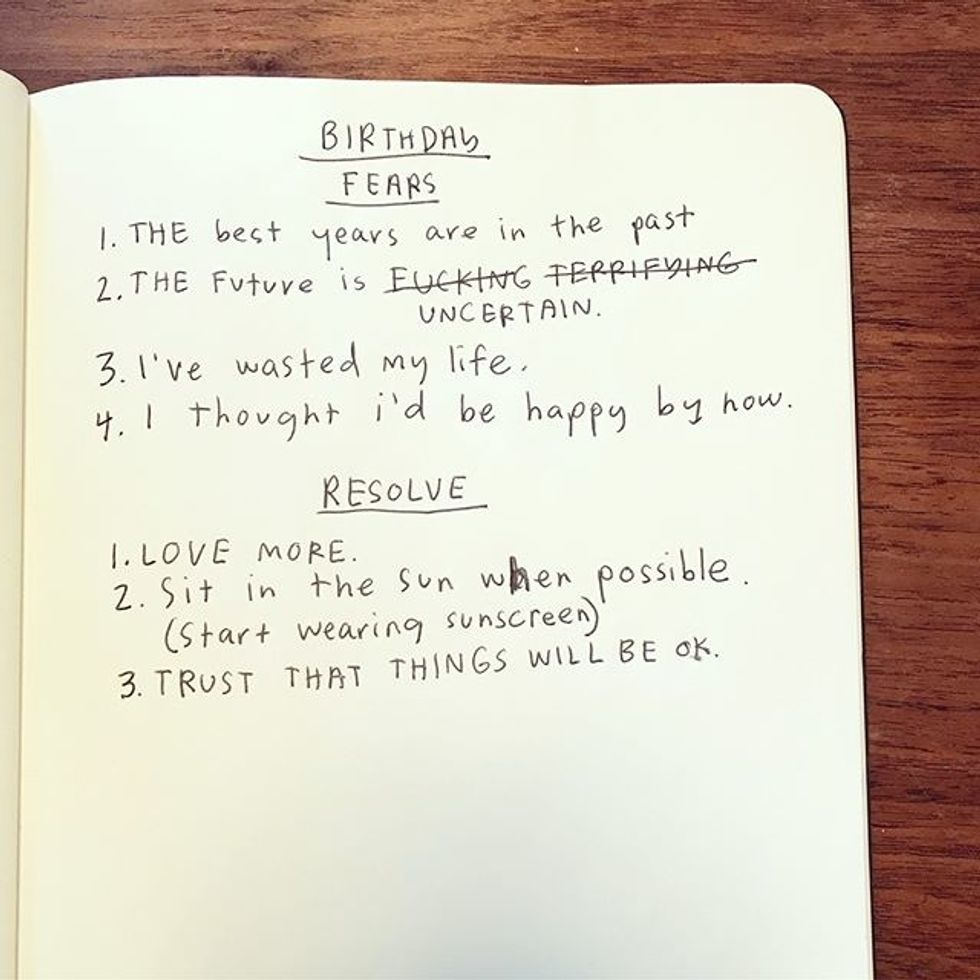 BIRTHDAY
FEARS
1. THE best years are in the past
2. THE Future is FUCKING TERRIFYING
UNCERTAIN.
3. I've wasted my life.
4. I thought i'd be happy by now.
RESOLVE
1. LOVE MORE.
2. Sit in the sun when possible.
(Start wearing sunscreen)
3. TRUST THAT THINGS WILL BE OK.